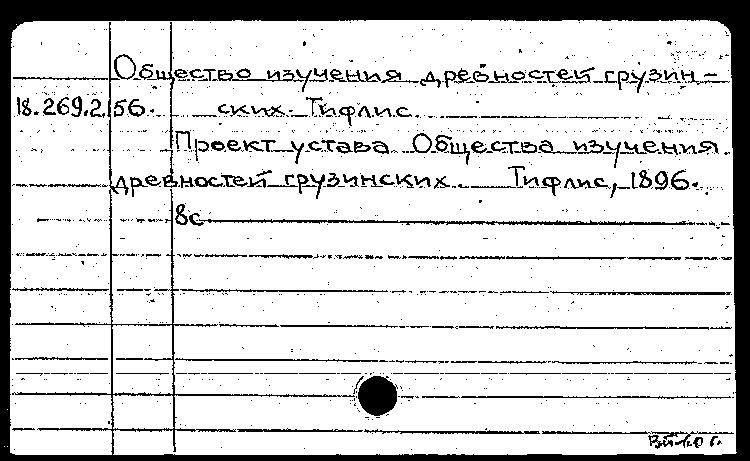 Общество изучения древностей грузин-
18.269.2.156. ских. Тифлис.
Проект устава Общества изучения
древностей грузинских. Тифлис, 1896.
8с.